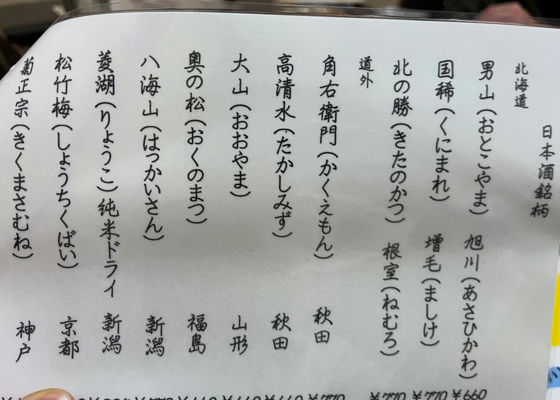 日本酒銘柄
北海道
男山(おとこやま) 旭川(あさひかわ) ¥660
国稀(くにまれ) 増毛(ましけ) ¥770
北の勝(きたのかつ) 根室(ねむろ) ¥770
道外
角右衛門(かくえもん) 秋田 ¥770
高清水(たかしみず) 秋田
大山(おおやま) 山形
奥の松(おくのまつ) 福島
八海山(はっかいさん) 新潟
菱湖(りょうこ)純米ドライ 新潟
松竹梅(しょうちくばい) 京都
菊正宗(きくまさむね) 神戸